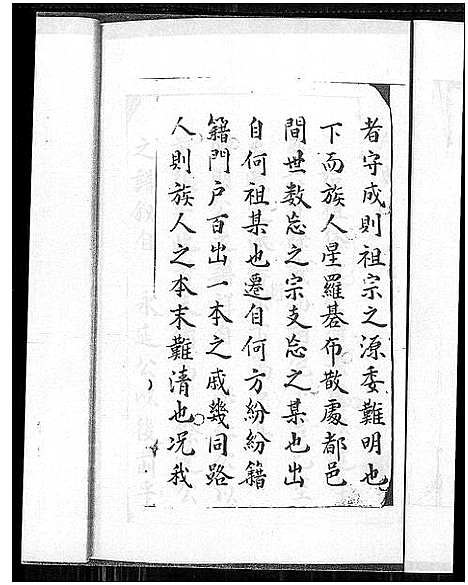 者守成則祖宗之源委難明也
下而族人星羅碁布散處都邑
間世數忘之宗支忘之某也出
自何祖某也遷自何方紛紛籍
籍門戶百出一本之戚幾同路
人則族人之本末難清也况我